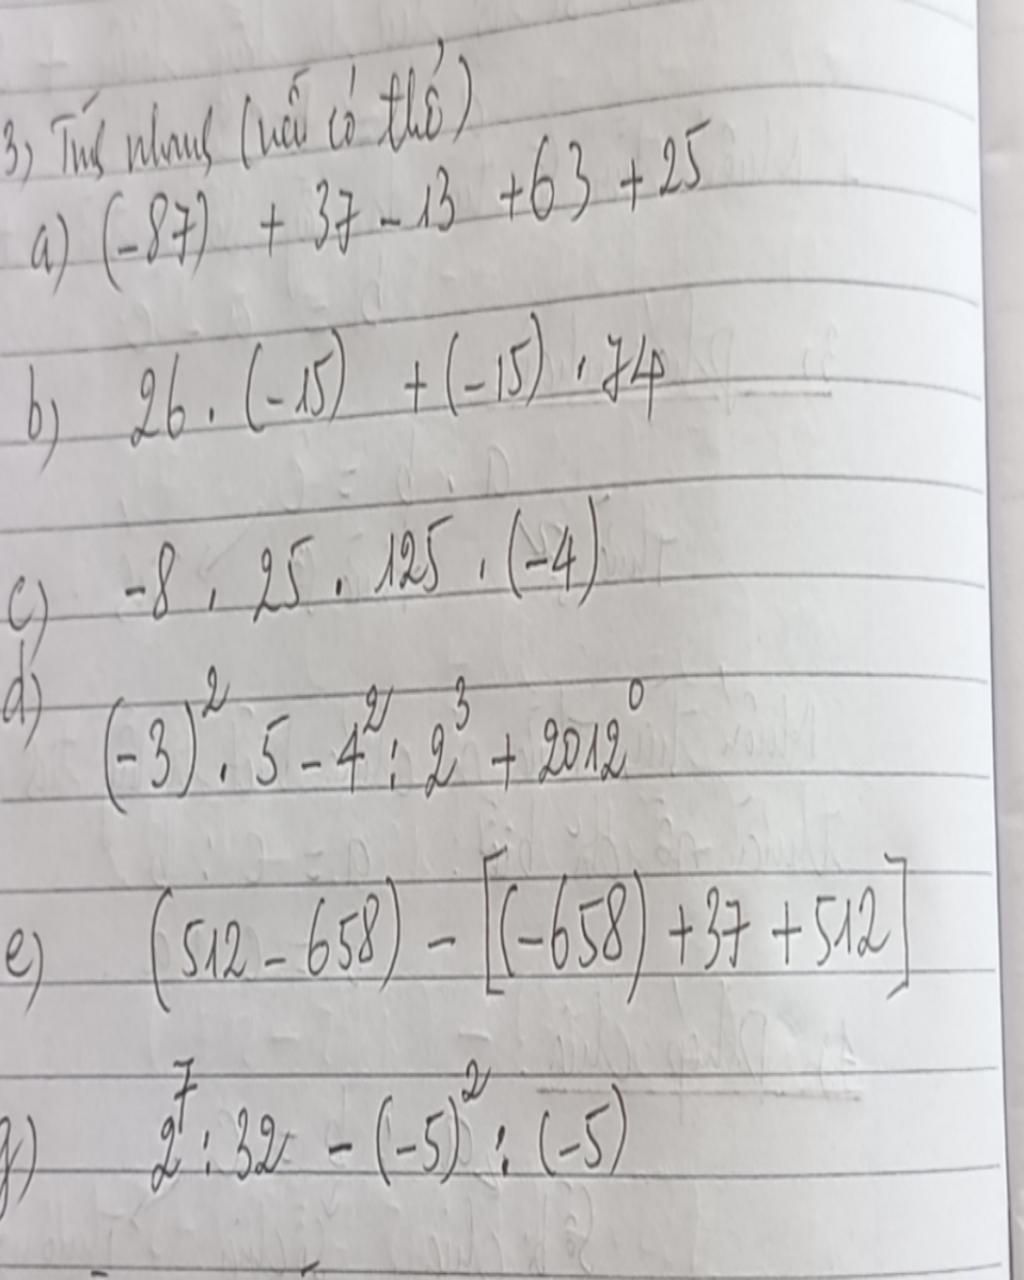 3, Tính nhanh (nếu có thể)
a) (-87) + 37 - 13 + 63 + 25
b) 26 . (-15) + (-15) . 74
c) -8 . 25 . 125 . (-4)
d) (-3)² . 5 - 4² : 2³ + 2012⁰
e) (512 - 658) - [(-658) + 37 + 512]
g) 2⁷ : 32 - (-5)² : (-5)